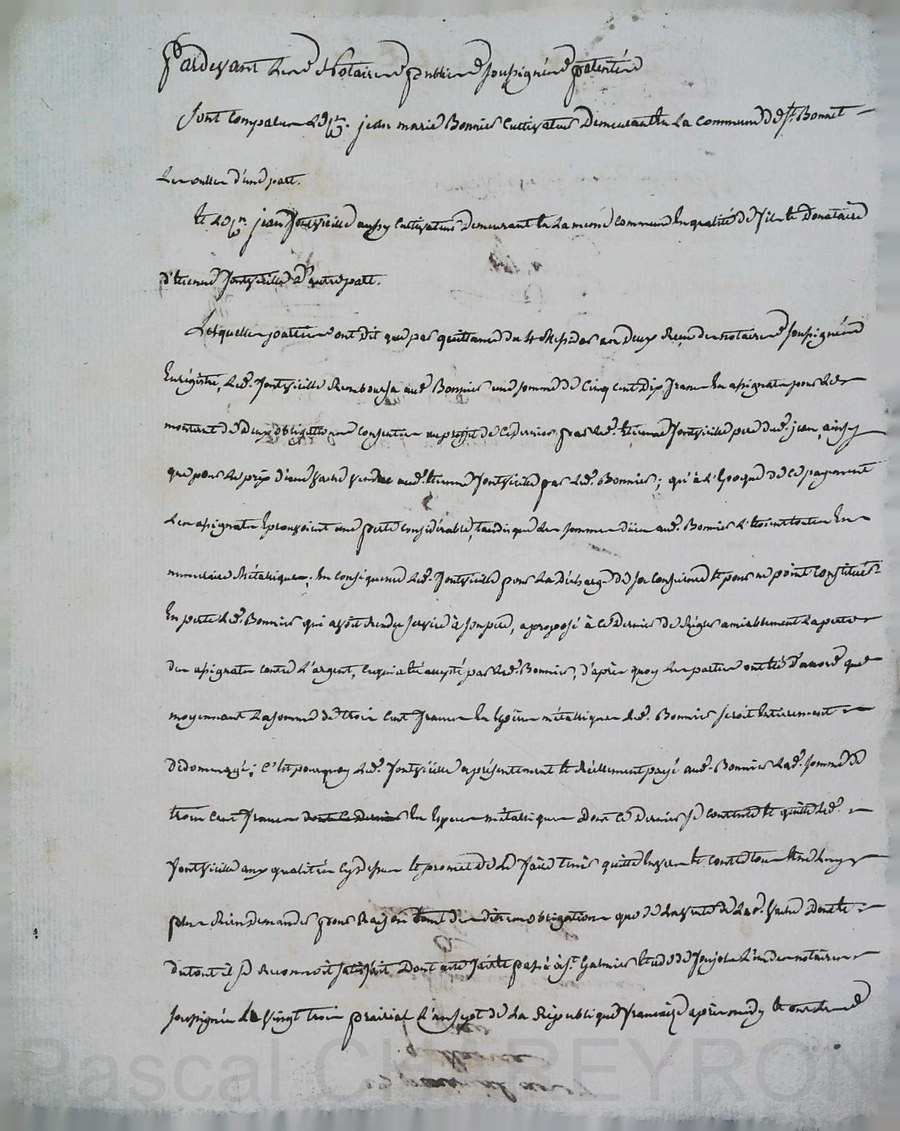 Pardevant Les Notaires publics soussignés patentés
sont comparus Le Cen. jean marie Bonnier Cultivateur Demeurant en La commune de St. Bonnet
Les oulles d'une part.
et Le Cen. jean fontvieille aussy Cultivateur Demeurant en La meme commune En qualité de fils et Donataire
d'Etienne fontvieille d'autre part.
Lesquelles parties ont dit que par quittance du 4 Messidor an deux Reçue des notaires soussignés
Enregistrée, Led. fontvieille Remboursa aud. Bonnier une somme de Cinq cent dix francs En assignats pour Le
montant de Deux obligations Consenties au profit de Ce dernier par led. Etienne fontvieille pere dud. jean, ainsy
que pour Le prix d'une vache vendue aud. Etienne fontvieille par Led. Bonnier; qu'à L'Epoque de Ce payement
Les assignats Eprouvoient une perte considérable, tandis que Les sommes dües aud. Bonnier L'étoient toutes En
numéraire Métallique; En conséquence Led. fontvieille pour La décharge de sa conscience et pour ne point Constituer
En perte Led. Bonnier qui avoit Rendu service à son pere, a proposé à Ce Dernier de Régler amiablement La perte
des assignats contre L'argent, Ce qui a été accepté par Led. Bonnier, d'après quoy Les parties ont été d'accord que
moyennant La somme de trois Cent francs En Espèces métalliques Led. Bonnier seroit Entierement
Dédommagé; C'est pourquoy Led. fontvieille a présentement et Réellement payé aud. Bonnier Lad. somme de
trois Cent francs dont Ce dernier En Especes métalliques Dont Ce Dernier se contente et quitte Led.
fontvieille aux qualités Cy dessus et promet de Le faire tenir quitte Envers et contre tous
plus Rien demander pour Raison tant des dites obligations que de La vente de Lad. vache Dont et
du tout il se Reconnoit satisfait. Dont acte fait et passé à St. Galmier Etude de Fonjols L'un des notaires
soussignés Le Vingt trois prairial L'an sept de La République française après midy et ont Led.
Pascal CHAREYRON